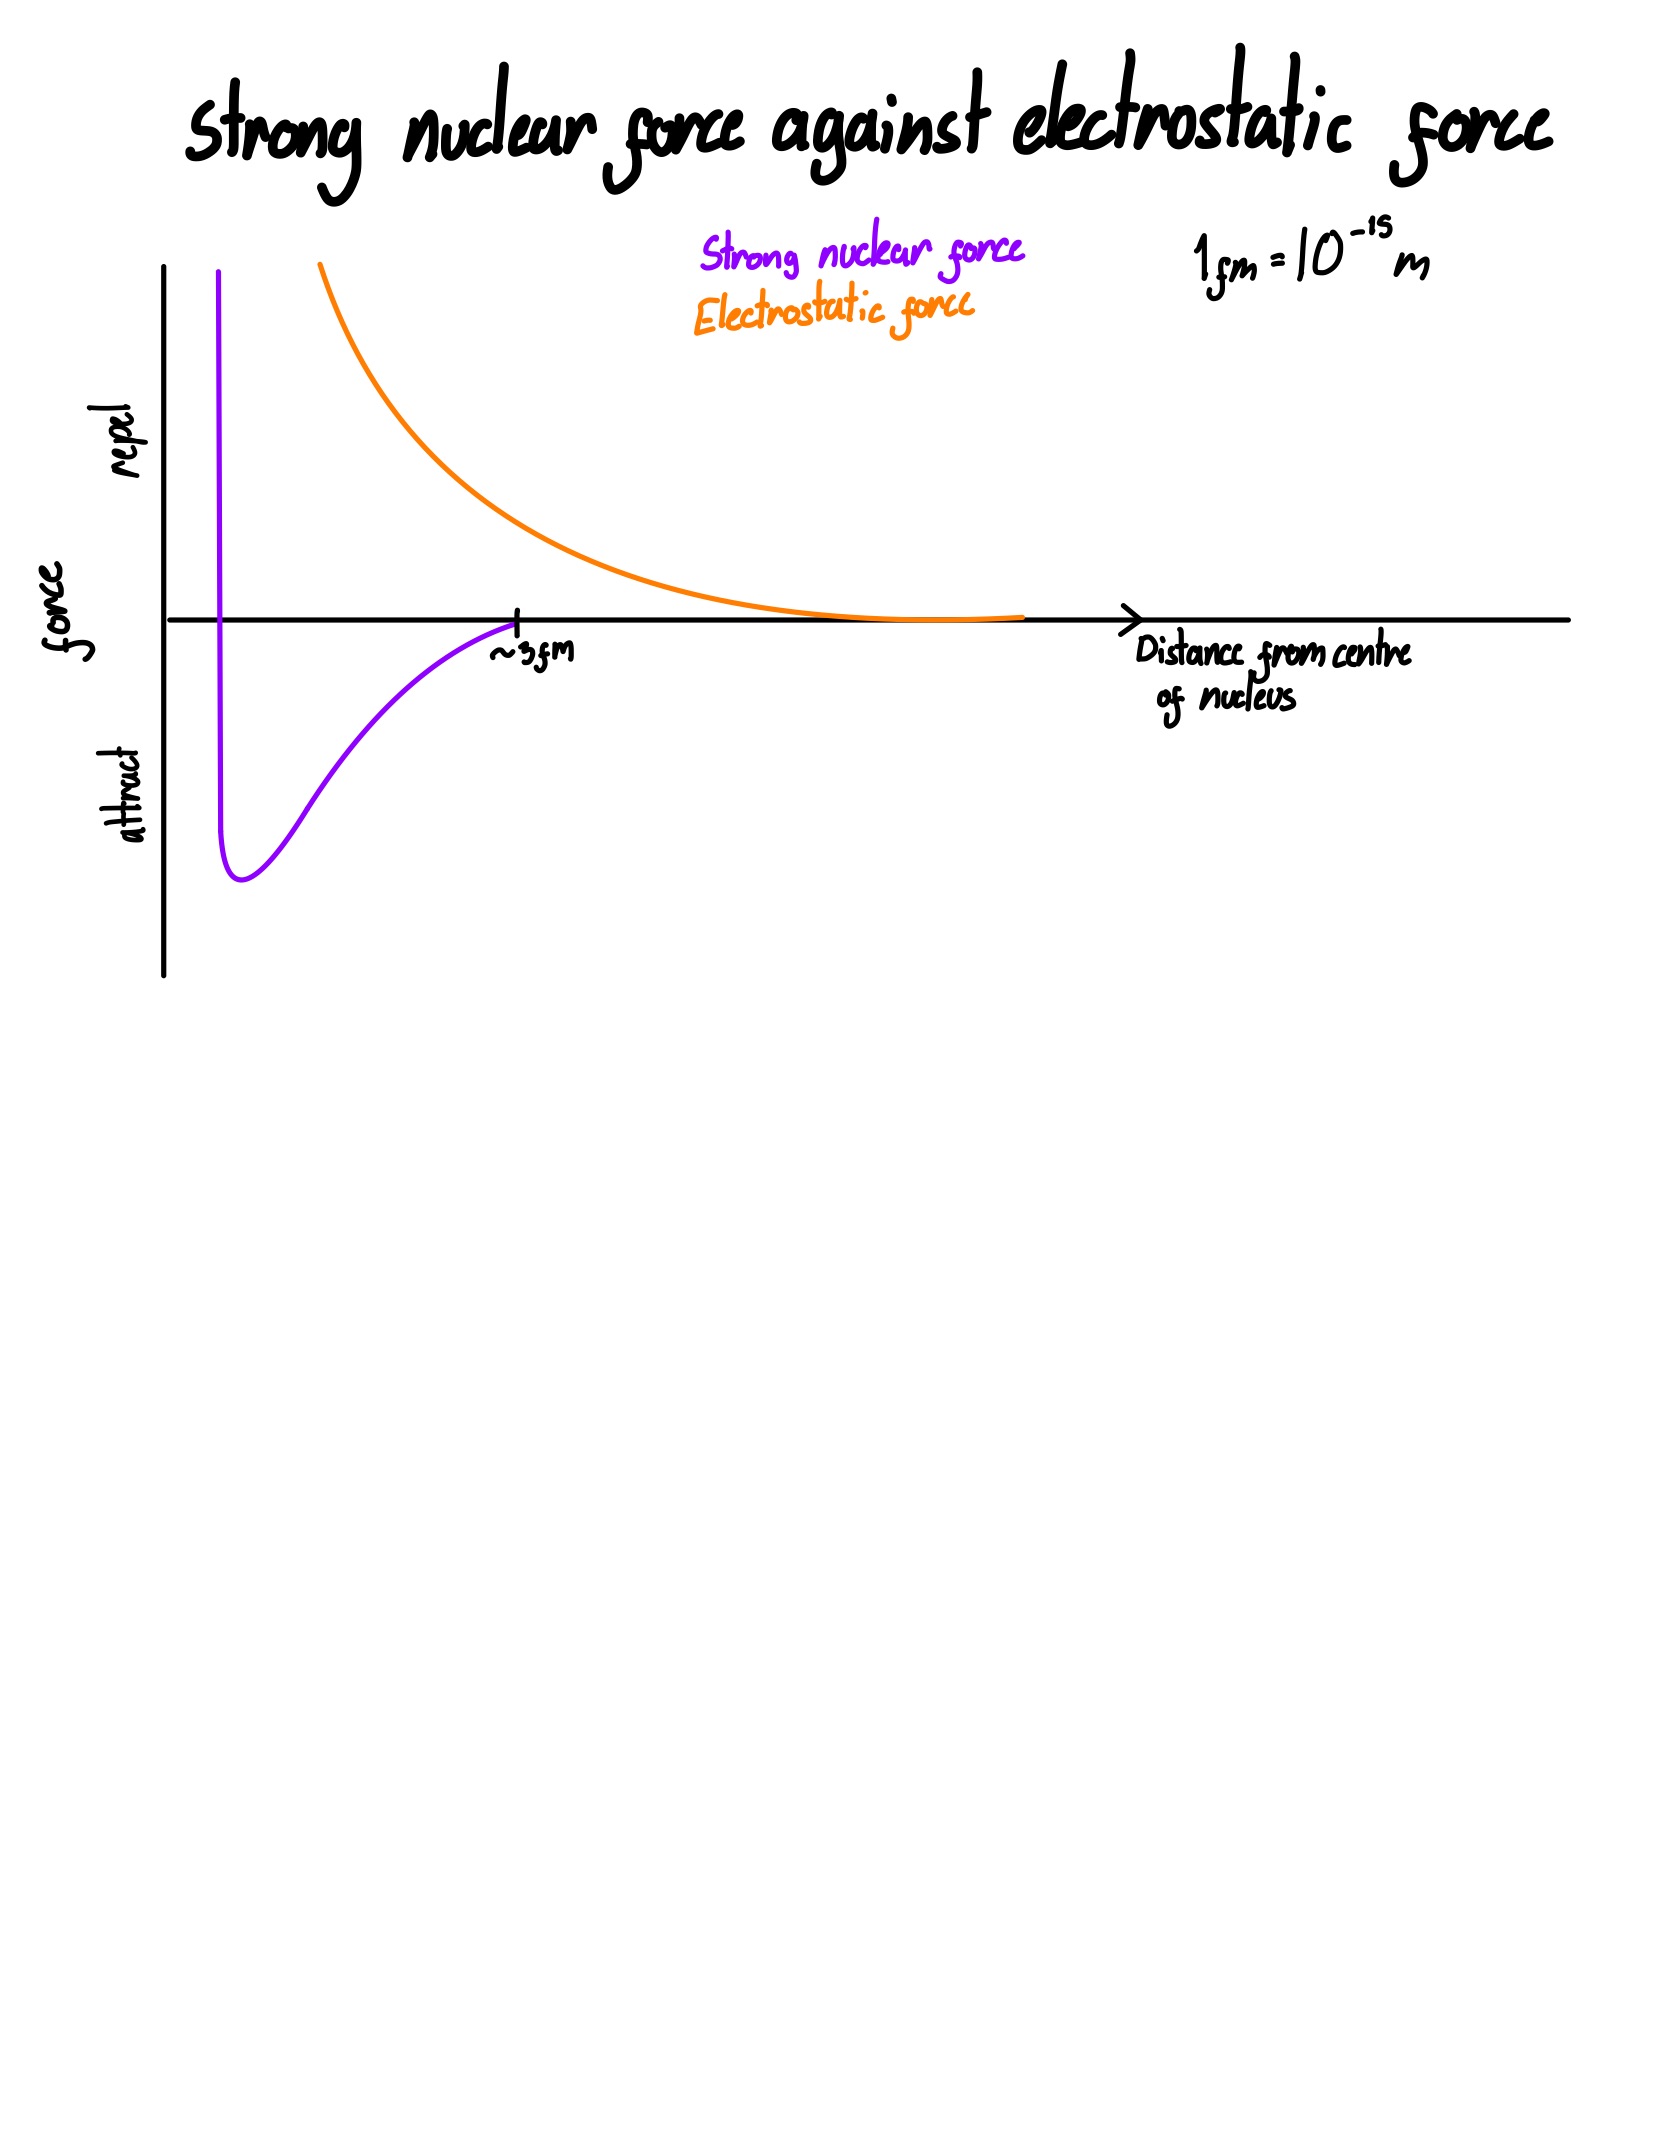 Strong nuclear force against electrostatic force
Strong nuclear force
Electrostatic force
1fm = 10^-15 m
repel
force
attract
~3fm
Distance from centre
of nucleus